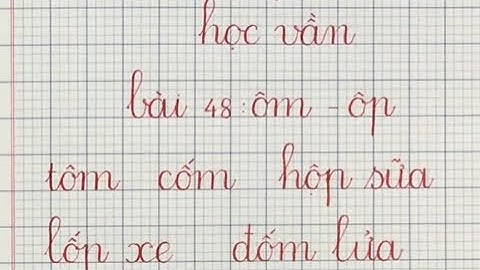 học vần
bài 48: ôm - ôp
tôm cốm hộp sữa
lốp xe đốm lửa